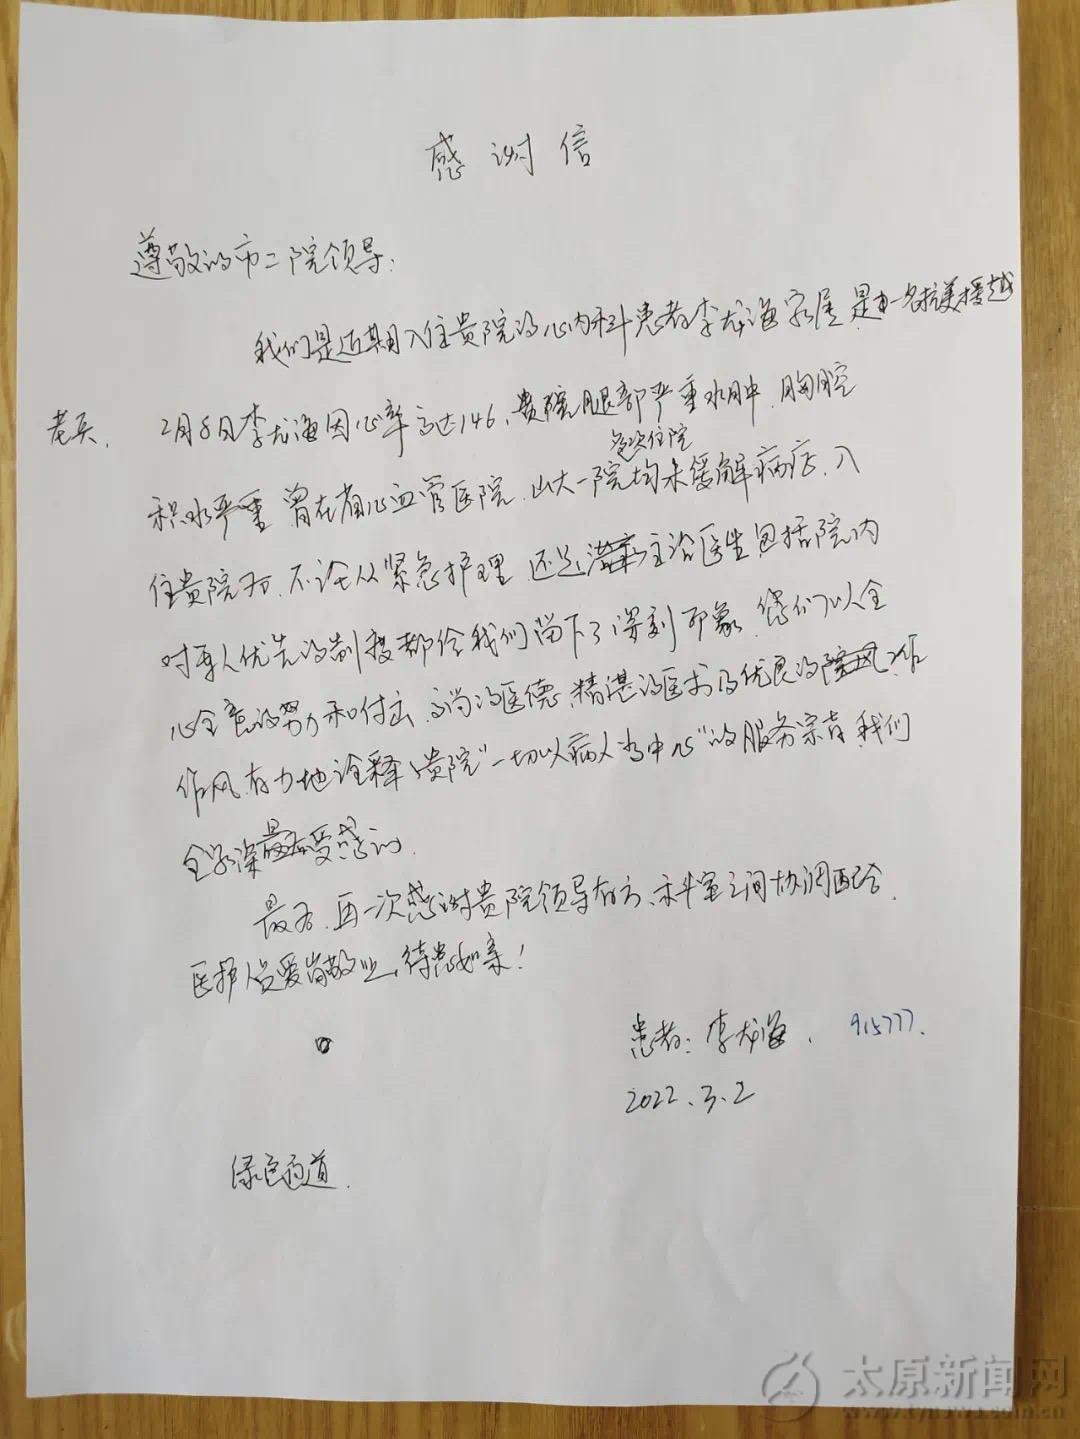 感谢信
尊敬的市二院领导:
我们是近期入住贵院的心内科患者李龙海家属,是一名抗美援越
老兵. 2月8日李龙海因心率高达146、腿部严重水肿、胸腔
多次住院
积水严重 曾在省心血管医院、山大一院均未缓解病症、入
住贵院后、不论从紧急护理 还是主治医生包括院内
对军人优先的制度都给我们留下了深刻印象、您们以全
心全意的努力和付出、高尚的医德、精湛的医术及优良的工作
作风、有力地诠释贵院"一切以病人为中心"的服务宗旨、我们
全家深受感动.
最后、再一次感谢贵院领导有方、科室之间协调配合、
医护人员爱岗敬业、待患如亲!
患者:李龙海、 915777.
2022.3.2
绿色通道.
太原新闻网